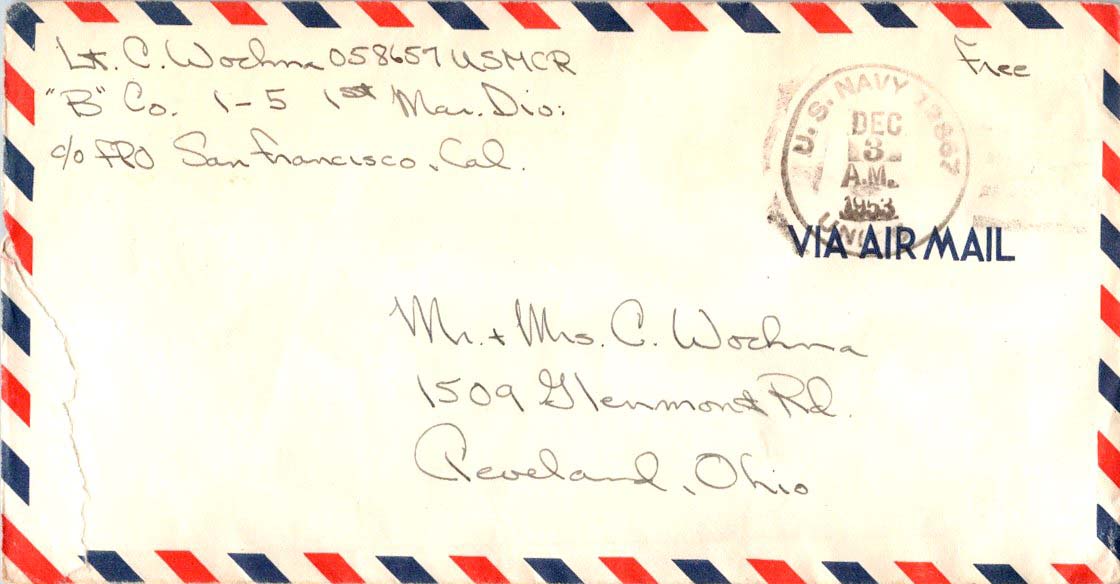 Lt. C. Wochna 058657 USMCR
"B" Co. 1-5 1st Mar. Div.
c/o FPO San Francisco, Cal.
Free
U.S. NAVY 12867
DEC
3
A.M.
1953
VIA AIR MAIL
Mr. + Mrs. C. Wochna
1509 Glenmont Rd.
Cleveland, Ohio